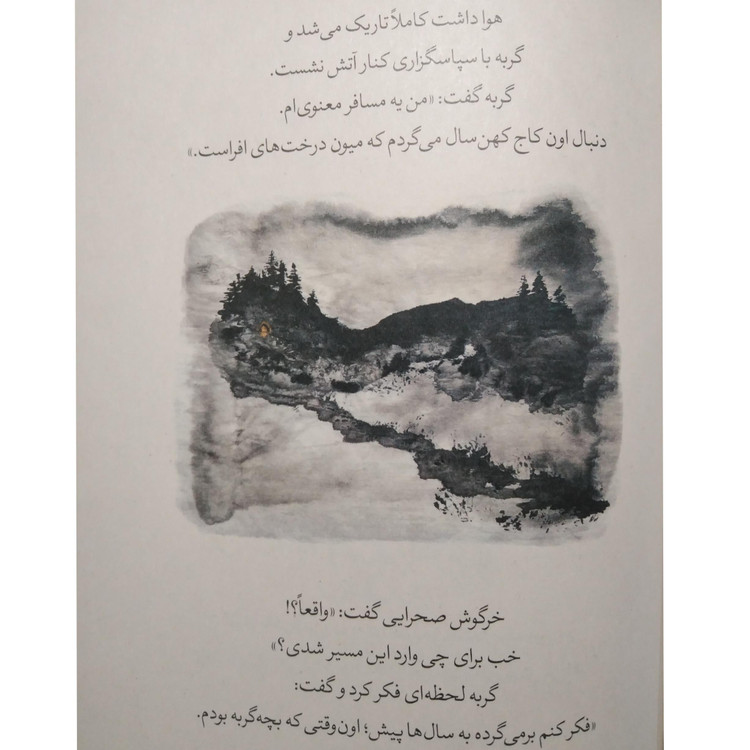 هوا داشت کاملاً تاریک می‌شد و
گربه با سپاسگزاری کنار آتش نشست.
گربه گفت: «من یه مسافر معنوی‌ام.
دنبال اون کاج کهن‌سال می‌گردم که میون درخت‌های افراست.»
خرگوش صحرایی گفت: «واقعاً؟!
خب برای چی وارد این مسیر شدی؟»
گربه لحظه‌ای فکر کرد و گفت:
«فکر کنم برمی‌گرده به سال‌ها پیش؛ اون‌وقتی که بچه‌گربه بودم.